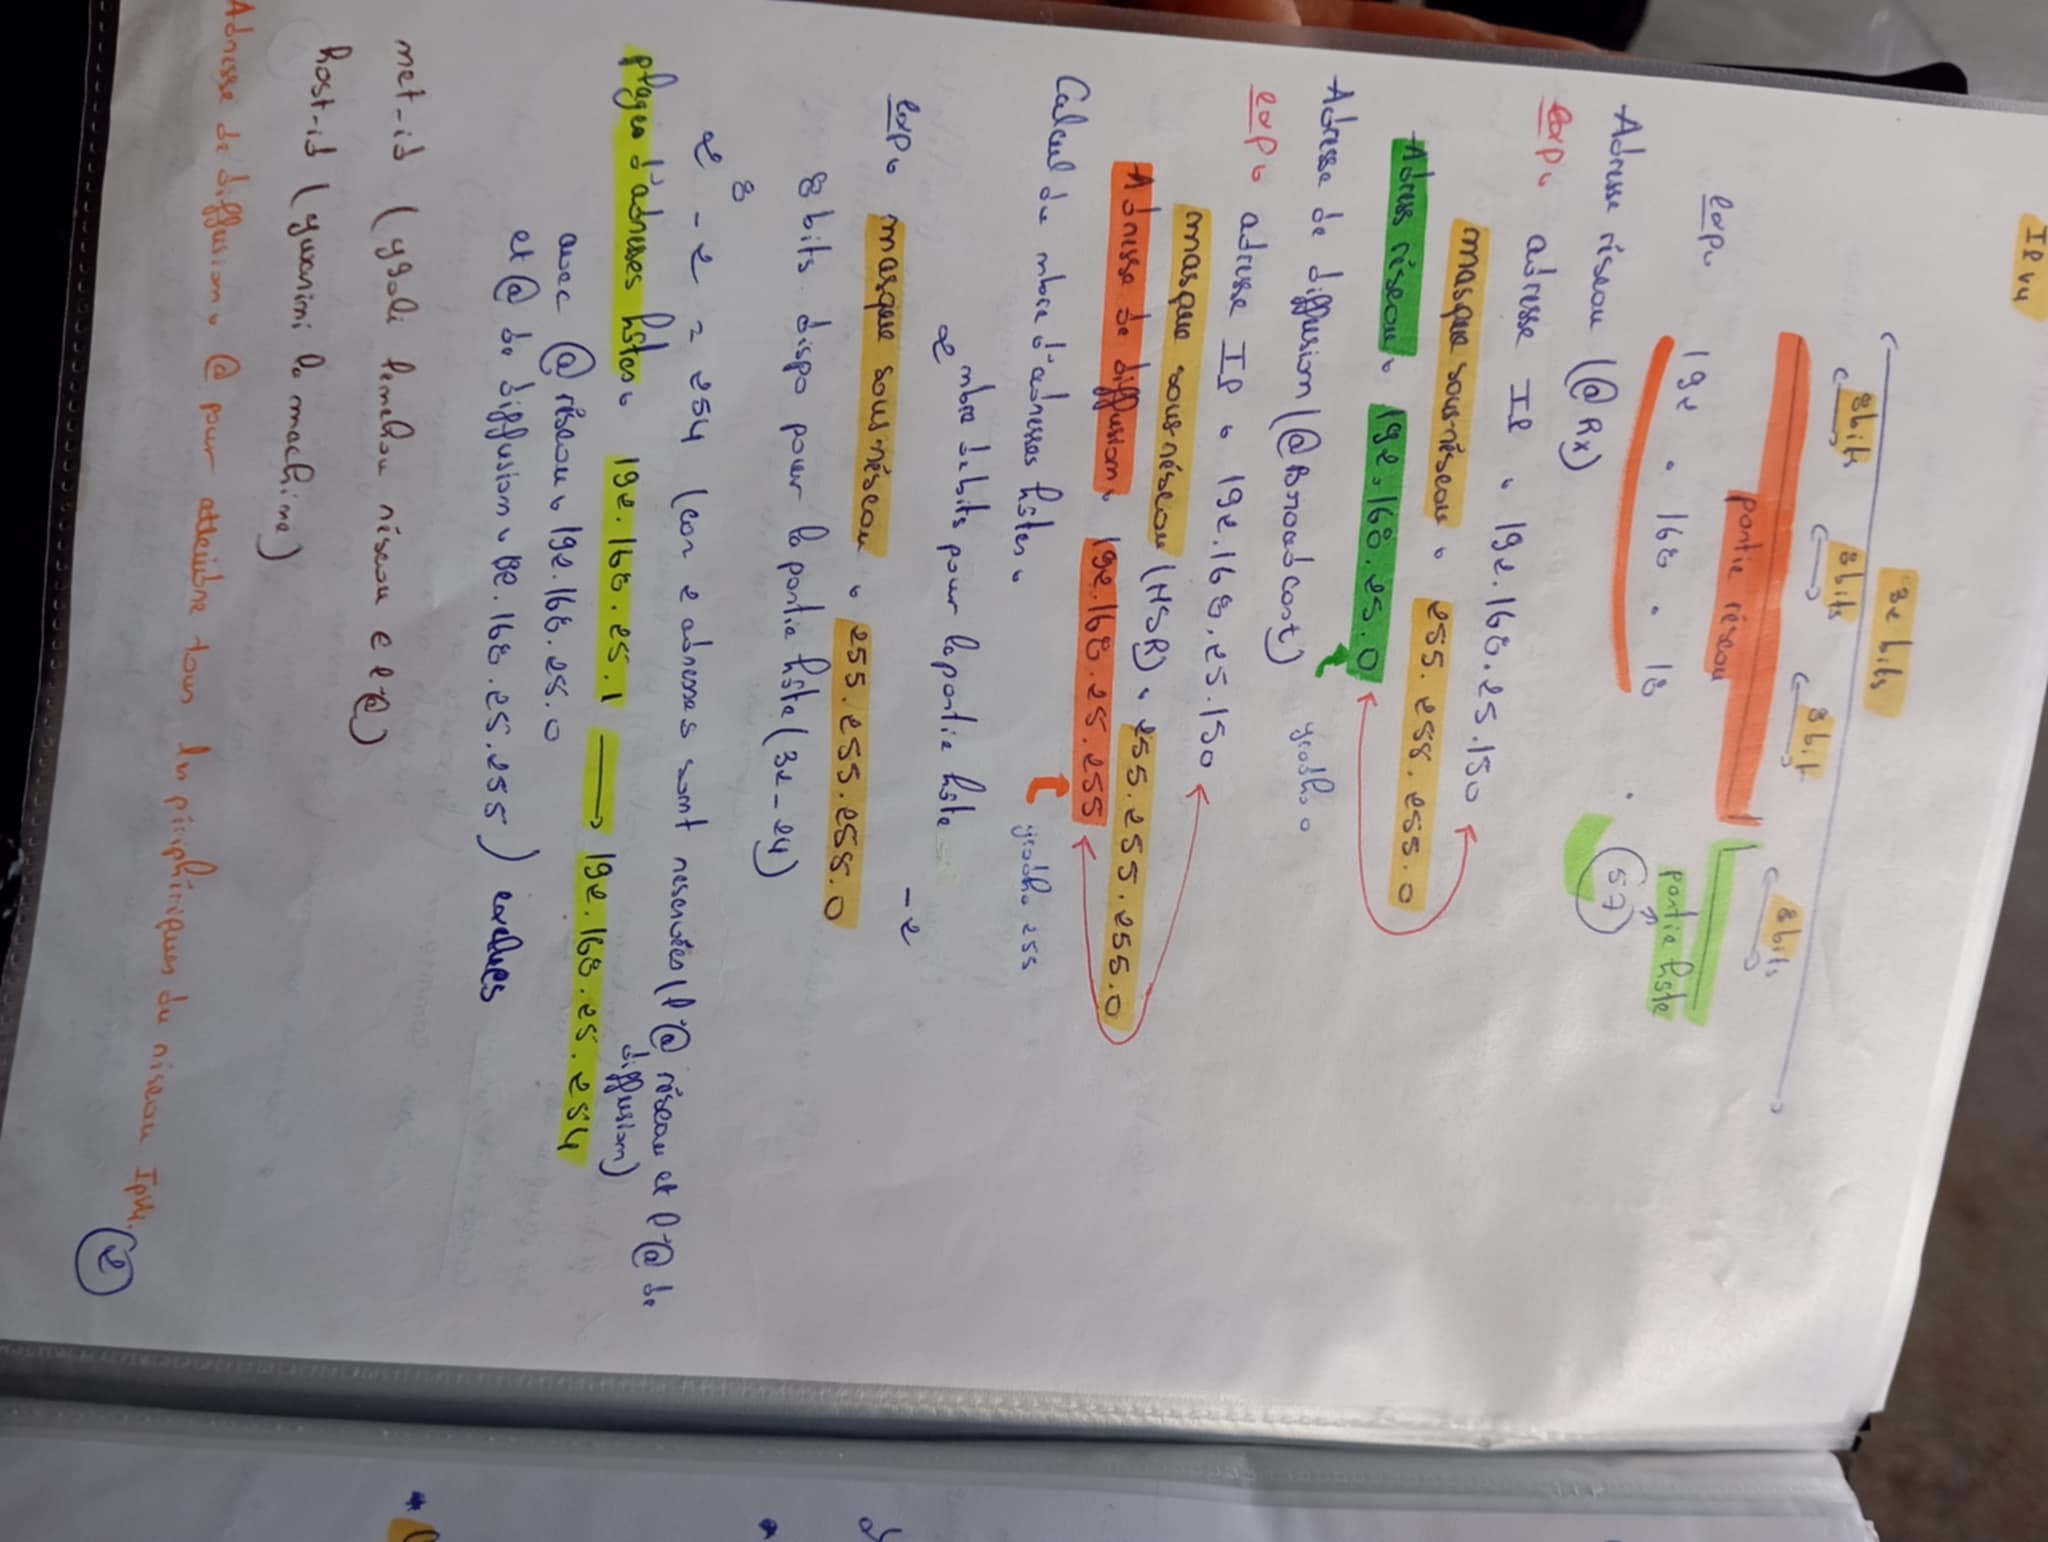 IPv4
32 bits
8bits 8bits 8bit 8bits
partie réseau partie hôte
exp: 192 . 168 . 18 . 57
Adresse réseau (@Rx)
exp: adresse IP : 192.168.25.150
masque sous-réseau : 255.255.255.0
Adress réseau : 192.168.25.0
yrodh 0
Adresse de diffusion (@Broadcast)
exp: adresse IP : 192.168.25.150
masque sous-réseau (MSR) : 255.255.255.0
Adresse de diffusion : 192.168.25.255
yrodh 255
Calcul du nbre d'adresses hôtes :
2 nbre de bits pour la partie hôte - 2
exp: masque sous-réseau : 255.255.255.0
8 bits dispo pour la partie hôte (32-24)
2 8 - 2 = 254 (car 2 adresses sont reservées (l'@ réseau et l'@ de
diffusion)
plages d'adresses hôtes : 192.168.25.1 → 192.168.25.254
avec @ réseau : 192.168.25.0
et @ de diffusion : 192.168.25.255) exclues
net-id (ygoli fenehou réseau e l'@)
host-id (ywarini la machine)
Adresse de diffusion : @ pour atteindre tous les périphériques du réseau IPv4.
2